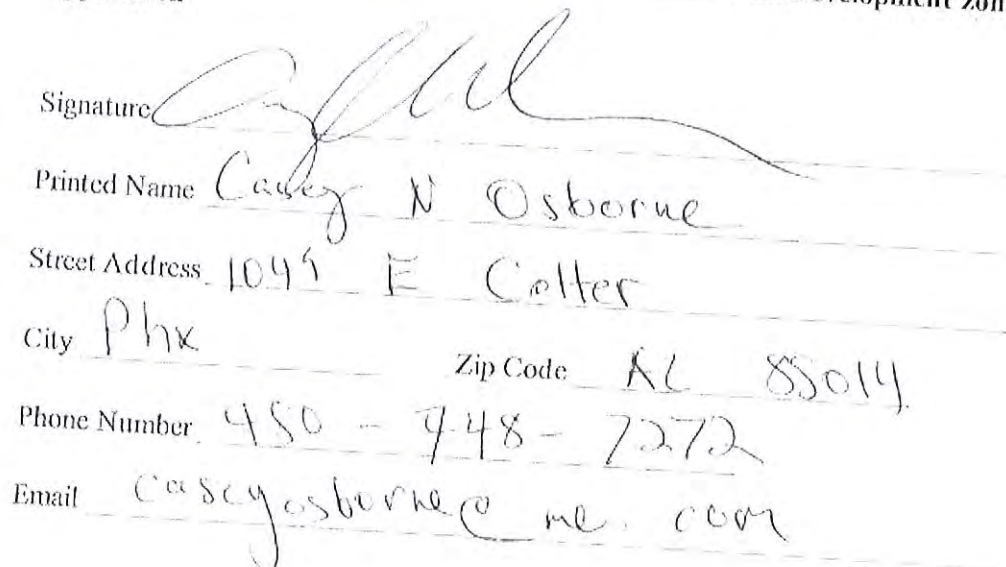 Development Zon
Signature
Printed Name Casey N Osborne
Street Address 1049 E Colter
City Phx Zip Code AZ 85014
Phone Number 480 - 448 - 7272
Email caseyosborne@me.com